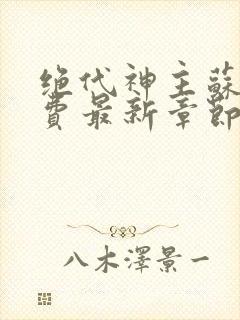 绝代神主蘇
費最新章節
八木澤景一